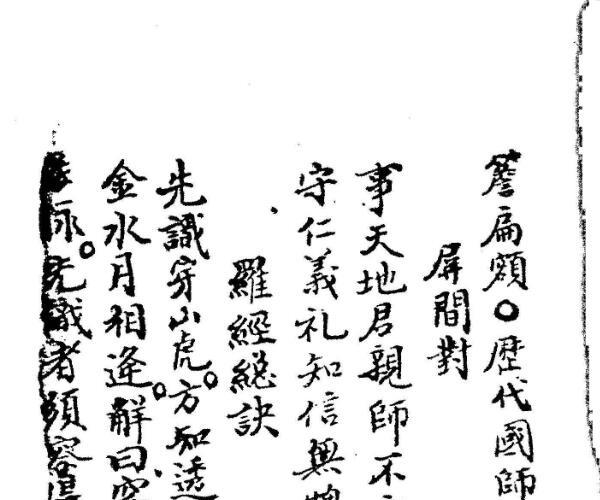 簷扁額○歷代國師
屏間對
事天地君親師不
守仁義礼知信無
羅經總訣
先識穿山虎。方知透
金水月相逢。解曰穿
脉。先識者須容